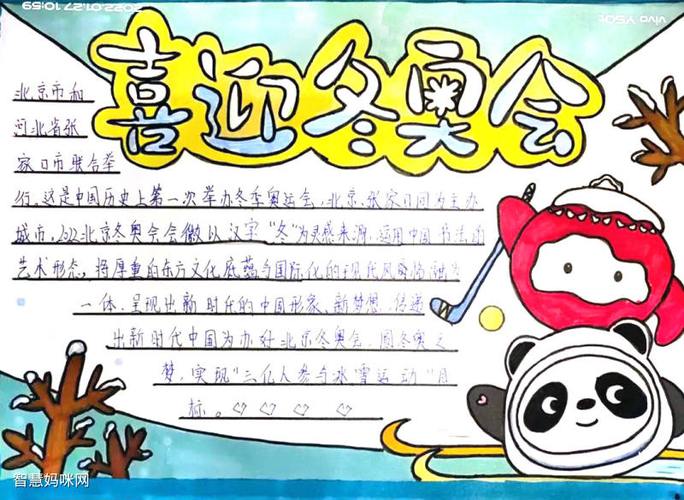 2022.01.27 10:59
vivo Y50t
喜迎冬奥会
北京市和
河北省张
家口市联合举
行。这是中国历史上第一次举办冬季奥运会,北京、张家口同为主办
城市。2022北京冬奥会会徽以汉字“冬”为灵感来源,运用中国书法的
艺术形态,将厚重的东方文化底蕴与国际化的现代风格融为
一体,呈现出新时代的中国形象、新梦想,传递
出新时代中国为办好北京冬奥会,圆冬奥之
梦,实现“三亿人参与冰雪运动”目
标。
智慧妈咪网